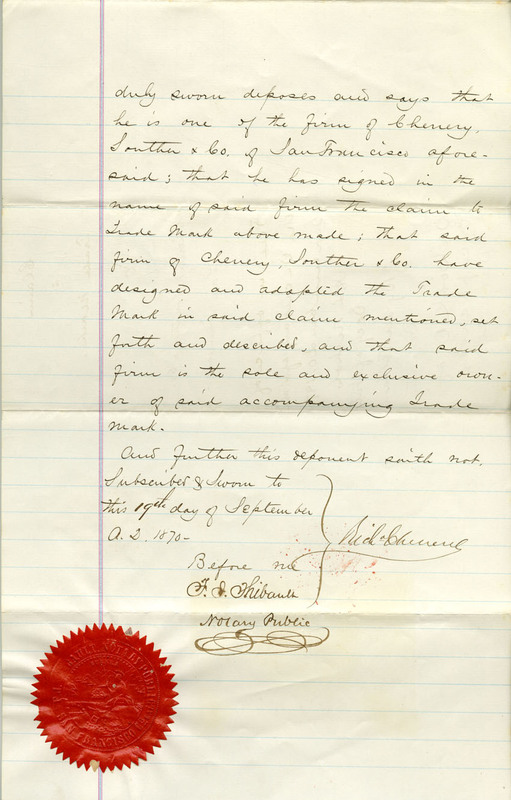 duly sworn deposes and says that
he is one of the firm of Chenery,
Souther & Co. of San Francisco afore-
said; that he has signed in the
name of said firm the claim to
Trade Mark above made; that said
firm of Chenery, Souther & Co. have
designed and adopted the Trade
Mark in said claim mentioned, set
forth and described, and that said
firm is the sole and exclusive own-
er of said accompanying Trade
Mark.
And further this deponent saith not.
Subscribed & Sworn to
this 19th day of September
A.D. 1870-
Richd Chenery
Before me
F. J. Thibault
Notary Public
NOTARY PUBLIC
SAN FRANCISCO